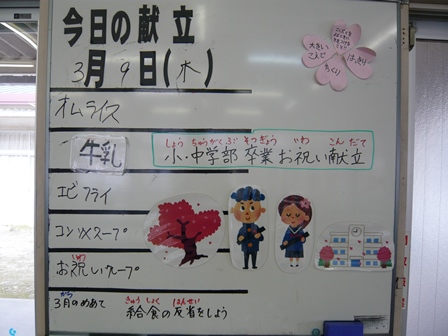 今日の献立
3月9日(木)
オムライス
牛乳
しょう ちゅうがくぶ そつぎょう いわ こんだて
小・中学部 卒業お祝い献立
エビフライ
コンソメスープ
いわ
お祝いクレープ
がつ
3月のめあて
きゅうしょく はんせい
給食の反省をしよう
大きい
こえで
はっきり
ゆっくり